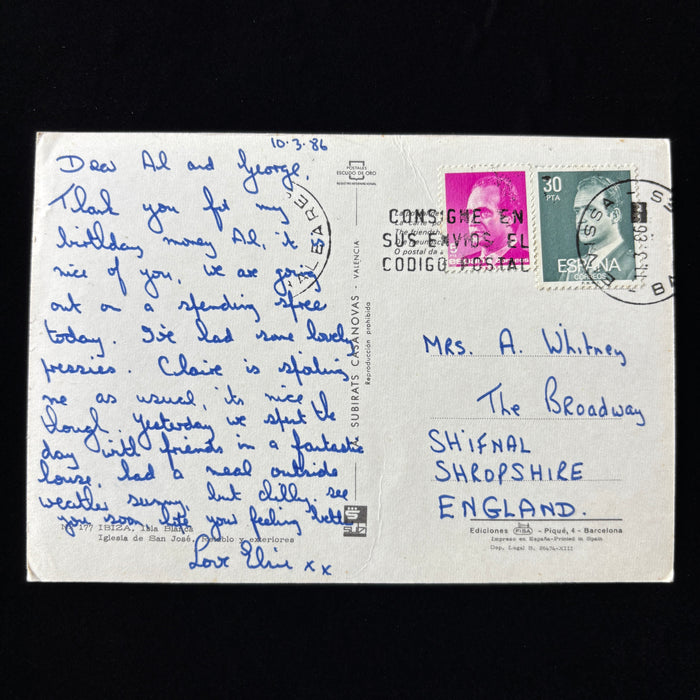 10.3.86
Dear Al and George,
Thank you for my
birthday money Al, it is
nice of you, we are going
out on a spending spree
today. I've had some lovely
pressies. Claire is spoiling
me as usual, its nice
though. Yesterday we spent the
day with friends in a fantastic
house, had a meal outside
weather sunny but chilly, see
you soon, hope your feeling better
Love Elsie x x
Nº 177 IBIZA. Isla Blanca
Iglesia de San José. Retablo y exteriores
POSTALES
ESCUDO DE ORO
REGISTRO INTERNACIONAL
SUBIRATS CASANOVAS - VALENCIA
Reproducción prohibida
BALEARES
CONSIGNE EN
SUS ENVIOS EL
CODIGO POSTAL
The friendship
O postal da
30
PTA
ESPAÑA
CORREOS
11.3.86
Mrs. A. Whitney
The Broadway
SHIFNAL
SHROPSHIRE
ENGLAND.
Ediciones FISA - Piqué, 4 - Barcelona
Impreso en España-Printed in Spain
Dep. Legal B. 26474-XIII